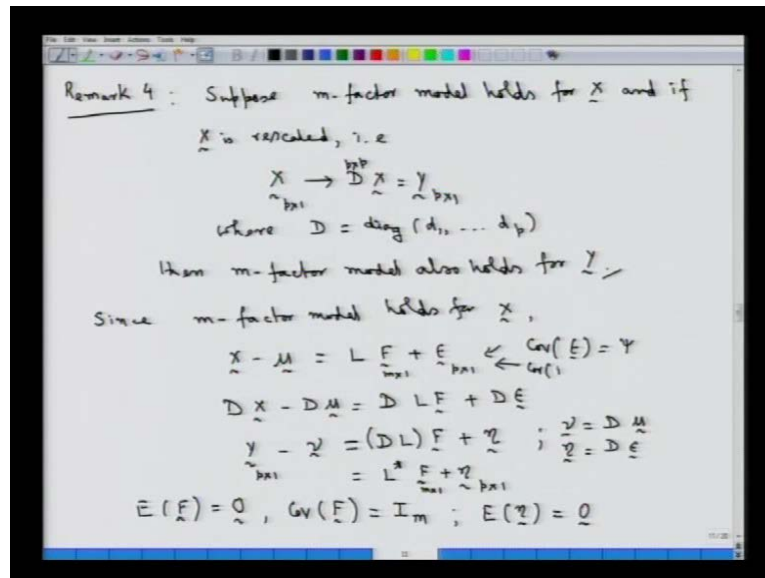 File Edit View Insert Actions Tools Help
Remark 4 : Suppose m-factor model holds for X and if
X is rescaled, i.e
X p×1 → D p×p X = Y p×1
where D = diag (d1, ... dp)
then m-factor model also holds for Y.
Since m-factor model holds for X,
X - μ = L F m×1 + ε p×1 ← Cov(ε) = Ψ
← Cov(
D X - D μ = D L F + D ε
Y p×1 - ν = (DL) F + η ; ν = D μ
η = D ε
= L* F m×1 + η p×1
E(F) = 0, Cov(F) = Im ; E(η) = 0